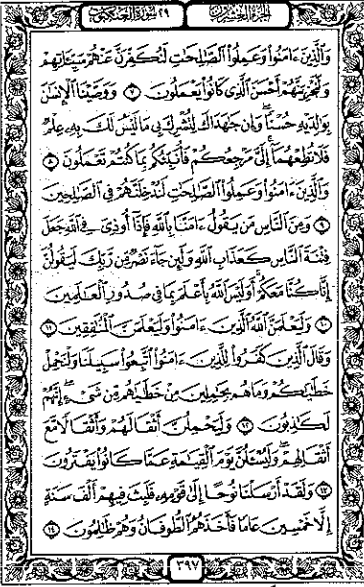 الجزء العشرون ٢٩ سورة العنكبوت
وَالَّذِينَ ءَامَنُوا وَعَمِلُوا الصَّالِحَاتِ لَنُكَفِّرَنَّ عَنْهُمْ سَيِّئَاتِهِمْ
وَلَنَجْزِيَنَّهُمْ أَحْسَنَ الَّذِي كَانُوا يَعْمَلُونَ ٧ وَوَصَّيْنَا الْإِنسَانَ
بِوَالِدَيْهِ حُسْنًا وَإِن جَاهَدَاكَ لِتُشْرِكَ بِي مَا لَيْسَ لَكَ بِهِ عِلْمٌ
فَلَا تُطِعْهُمَا إِلَيَّ مَرْجِعُكُمْ فَأُنَبِّئُكُم بِمَا كُنتُمْ تَعْمَلُونَ ٨
وَالَّذِينَ ءَامَنُوا وَعَمِلُوا الصَّالِحَاتِ لَنُدْخِلَنَّهُمْ فِي الصَّالِحِينَ
٩ وَمِنَ النَّاسِ مَن يَقُولُ ءَامَنَّا بِاللَّهِ فَإِذَا أُوذِيَ فِي اللَّهِ جَعَلَ
فِتْنَةَ النَّاسِ كَعَذَابِ اللَّهِ وَلَئِن جَاءَ نَصْرٌ مِّن رَّبِّكَ لَيَقُولُنَّ
إِنَّا كُنَّا مَعَكُمْ أَوَلَيْسَ اللَّهُ بِأَعْلَمَ بِمَا فِي صُدُورِ الْعَالَمِينَ
١٠ وَلَيَعْلَمَنَّ اللَّهُ الَّذِينَ ءَامَنُوا وَلَيَعْلَمَنَّ الْمُنَافِقِينَ ١١
وَقَالَ الَّذِينَ كَفَرُوا لِلَّذِينَ ءَامَنُوا اتَّبِعُوا سَبِيلَنَا وَلْنَحْمِلْ
خَطَايَاكُمْ وَمَا هُم بِحَامِلِينَ مِنْ خَطَايَاهُم مِّن شَيْءٍ إِنَّهُمْ
لَكَاذِبُونَ ١٢ وَلَيَحْمِلُنَّ أَثْقَالَهُمْ وَأَثْقَالًا مَّعَ
أَثْقَالِهِمْ وَلَيُسْئَلُنَّ يَوْمَ الْقِيَامَةِ عَمَّا كَانُوا يَفْتَرُونَ
١٣ وَلَقَدْ أَرْسَلْنَا نُوحًا إِلَى قَوْمِهِ فَلَبِثَ فِيهِمْ أَلْفَ سَنَةٍ
إِلَّا خَمْسِينَ عَامًا فَأَخَذَهُمُ الطُّوفَانُ وَهُمْ ظَالِمُونَ ١٤
٣٩٧